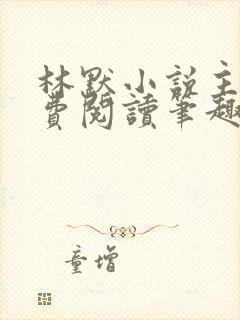 林默小説主
費閱讀筆趣
童增